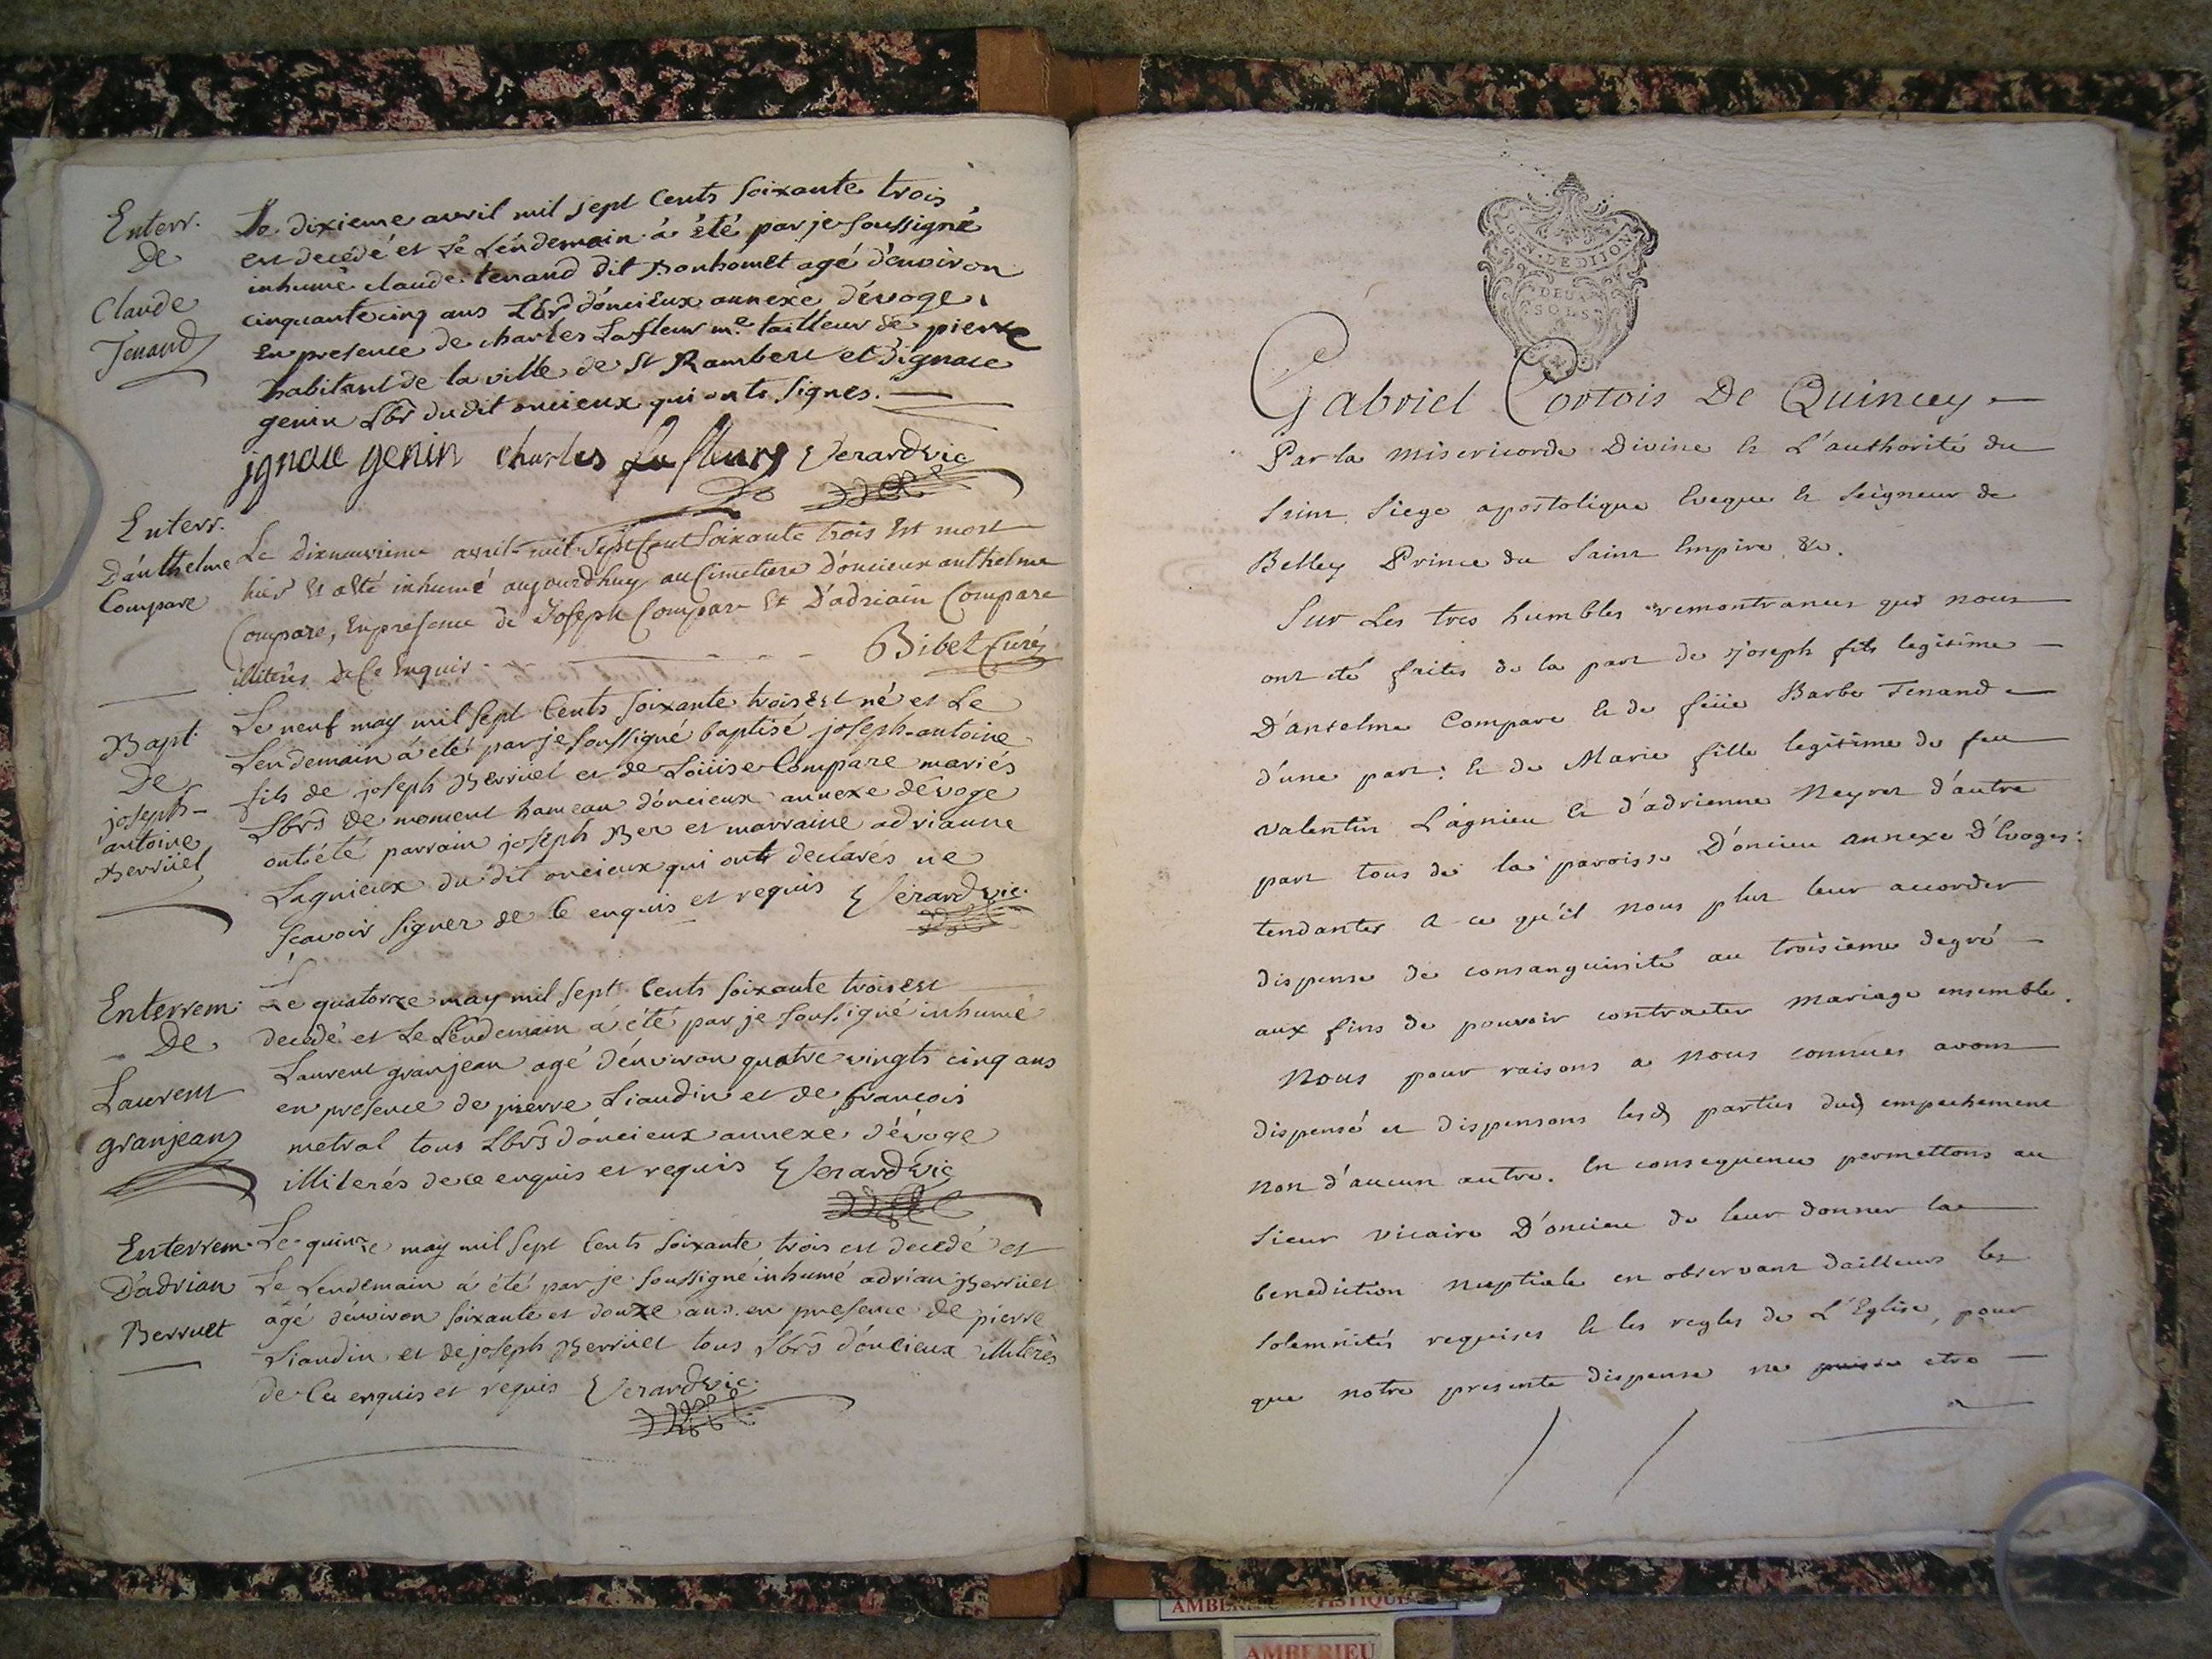 Enterr.
De
Claude
Tenand
Le dixieme avril mil sept Cents soixante trois
est decédé et Le Lendemain à été par je soussigné
inhumé claude tenand dit Bonhomet agé d'environ
cinquante cinq ans Lbr̃ d'oncieux annexe d'évoge
en presence de charles Lafleur me tailleur de pierre
habitant de la ville de St Rambert et d'ignace
genin Lbr̃ du dit oncieux qui onts signes.
ignace genin charles Lafleur Verard vic
Enterr.
D'anthelme
Compare
Le Dixneuvieme avril mil sept Cent soixante trois Est mort
hier Et a été inhumé aujourdhuy au Cimetiere D'oncieux anthelme
Compare, En présence de Joseph Compare Et D'adriain Compare
illiterés De Ce Enquis Bibet Curé
Bapt.
De
joseph-
antoine
Berrüet
Le neuf may mil sept Cents soixante trois est né et Le
Lendemain à été par je soussigné baptisé joseph-antoine
fils de joseph Berrüet et de Loüise Compare mariés
Lbrs̃ de moment hameau d'oncieux annexe d'évoge
ont été parrain joseph Ber et marraine adrianne
Lagnieux du dit oncieux qui onts declarés ne
scavoir signer de Ce enquis et requis Verard vic.
Enterrem.
De
Laurent
granjean
Le quatorze may mil sept Cents soixante trois est
decedé et Le Lendemain a été par je soussigné inhumé
Laurent granjean agé d'environ quatre vingts cinq ans
en presence de pierre Liaudin et de françois
metral tous Lbrs̃ d'oncieux annexe d'évoge
illiterés de ce enquis et requis Verard vic
Enterrem.
D'adrian
Berruet
Le quinze may mil sept Cents soixante trois est decedé et
Le Lendemain à été par je soussigné inhumé adrian Berrüet
agé d'environ soixante et douze ans en presence de pierre
Liaudin et de joseph Berrüet tous Lbrs̃ d'oncieux illiterés
de Ce enquis et requis Verard vic.
GEN. DE DIJON
DEUX
SOLS
Gabriel Cortois De Quincey
Par la misericorde Divine & L'authorité du
saint siege apostolique Eveque & seigneur de
Belley Prince du saint Empire &c.
Sur Les tres humbles remontrances qui nous
ont eté faites de la part de joseph fils legitime
D'anselme Compare & de feüe Barbe Tenand
d'une part: & de Marie fille legitime de feu
valentin Lagnieu & d'adrienne Neyret d'autre
part tous de la paroisse D'oncieu annexe D'Evoges:
tendantes a ce qu'il nous plut leur accorder
dispense de consanguinité au troisieme degré
aux fins de pouvoir contracter mariage ensemble.
Nous pour raisons a Nous connues avons
dispensé et dispensons lesd. parties dud. empechement
non d'aucun autre. En consequence permettons au
sieur vicaire D'oncieu de leur donner la
benediction nuptiale en observant dailleurs les
solemnités requises & les regles de L'Eglise, pour
que notre presente dispense ne puisse etre
AMBERIEU